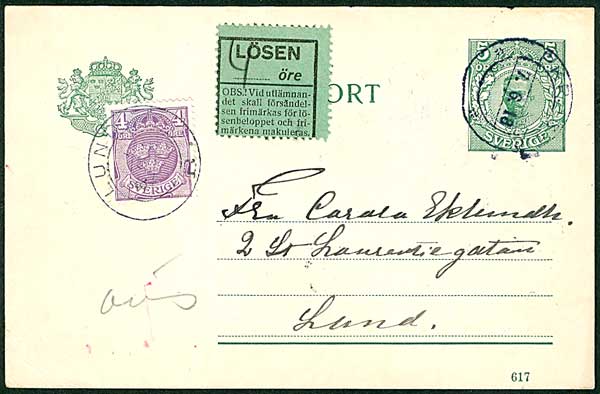 LÖSEN
4 öre
OBS.! Vid utlämnan-
det skall försändel-
sen frimärkas för lö-
senbeloppet och fri-
märkena makuleras.
ORT
5
SVERIGE
4 4
SVERIGE
LUN
Fru Carola Eklundh.
2 St Laurentiegatan
Lund.
617